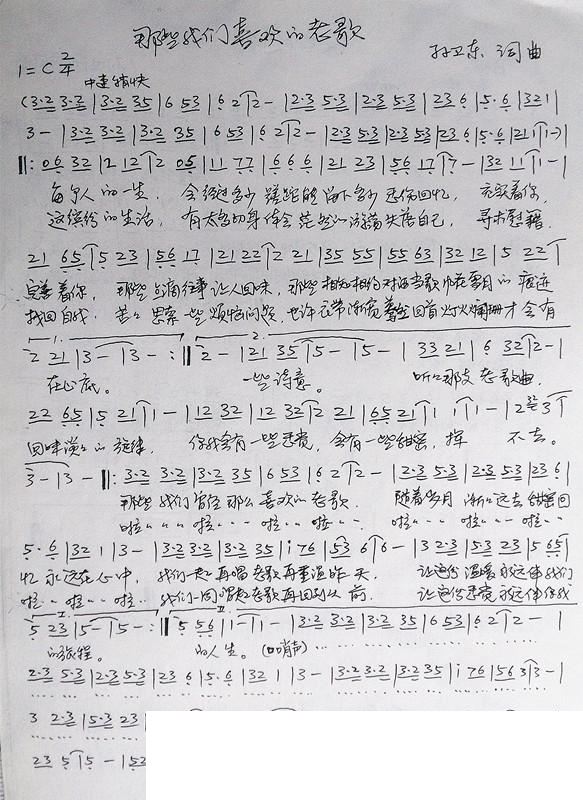 那些我们喜欢的老歌
1=C 2/4 孙卫东 词曲
中速稍快
(3·2 3·2 | 3·2 35 | 6 53 | 6 2 | 2 - | 2·3 5·3 | 2·3 5·3 | 23 6 | 5·6 | 321 |
3 - | 3·2 3·2 | 3·2 35 | 6 53 | 6 2 | 2 - | 2·3 5·3 | 2·3 5·3 | 23 6 | 5·6 | 21 1 | 1 - )
‖: 06 32 | 2 12 | 2 05 | 11 77 | 6 6 6 | 21 23 | 56 17 | 7 - | 32 11 | 1 - |
每个人的一生, 会经过多少蹉跎能留下多少悲伤回忆, 充实着你
这缤纷的生活, 有太多切身体会 失落自己, 寻求慰藉
21 65 | 5 23 | 56 17 | 21 22 | 2 21 | 35 55 | 55 63 | 32 12 | 5 22 |
完善着你, 那些点滴往事让人回味, 那些相知相约对酒当歌 岁月的痕迹
找回自我 苦苦思索一些烦恼问题, 也许 回首灯火阑珊才会有
2 21 | 3 - | 3 - :‖ 2 - | 21 35 | 5 - | 5 - | 33 21 | 6 32 | 2 - |
在心底。 一些诗意。 听听那支老歌曲
22 65 | 5 21 | 1 - | 12 32 | 12 32 | 2 21 | 65 21 | 1 1 | 1 - | 2 32 3 |
回味淡淡的旋律 你我会有一些悲觉, 会有一些甜蜜, 挥 不去。
3 - | 3 - ‖: 3·2 3·2 | 3·2 35 | 6 53 | 6 2 | 2 - | 2·3 5·3 | 2·3 5·3 | 23 6 |
那些我们曾经那么喜欢的老歌 随着岁月渐渐远去 甜蜜回
啦 啦 啦 啦 啦 啦 啦
5·6 | 32 1 | 3 - | 3·2 3·2 | 3·2 35 | i 76 | 53 6 | 6 - | 3 2·3 | 5·3 23 | 5 65 |
忆永远在心中, 我们一起再唱老歌再重温昨天 让这份温暖永远伴我们
啦 啦 啦 我们一同唱起老歌再回到从前 让这份悲觉永远伴你我
5 23 | 5 - | 5 - :‖ 5 56 | i - | i - | 3·2 3·2 | 3·2 35 | 6 53 | 6 2 | 2 - |
的旅程。 的人生。 (口哨声)
2·3 5·3 | 2·3 5·3 | 23 6 | 5·6 | 32 1 | 3 - | 3·2 3·2 | 3·2 35 | i 76 | 56 3 | 3 - |
3 2·3 | 5·3 23
23 5 | 5 - | 52